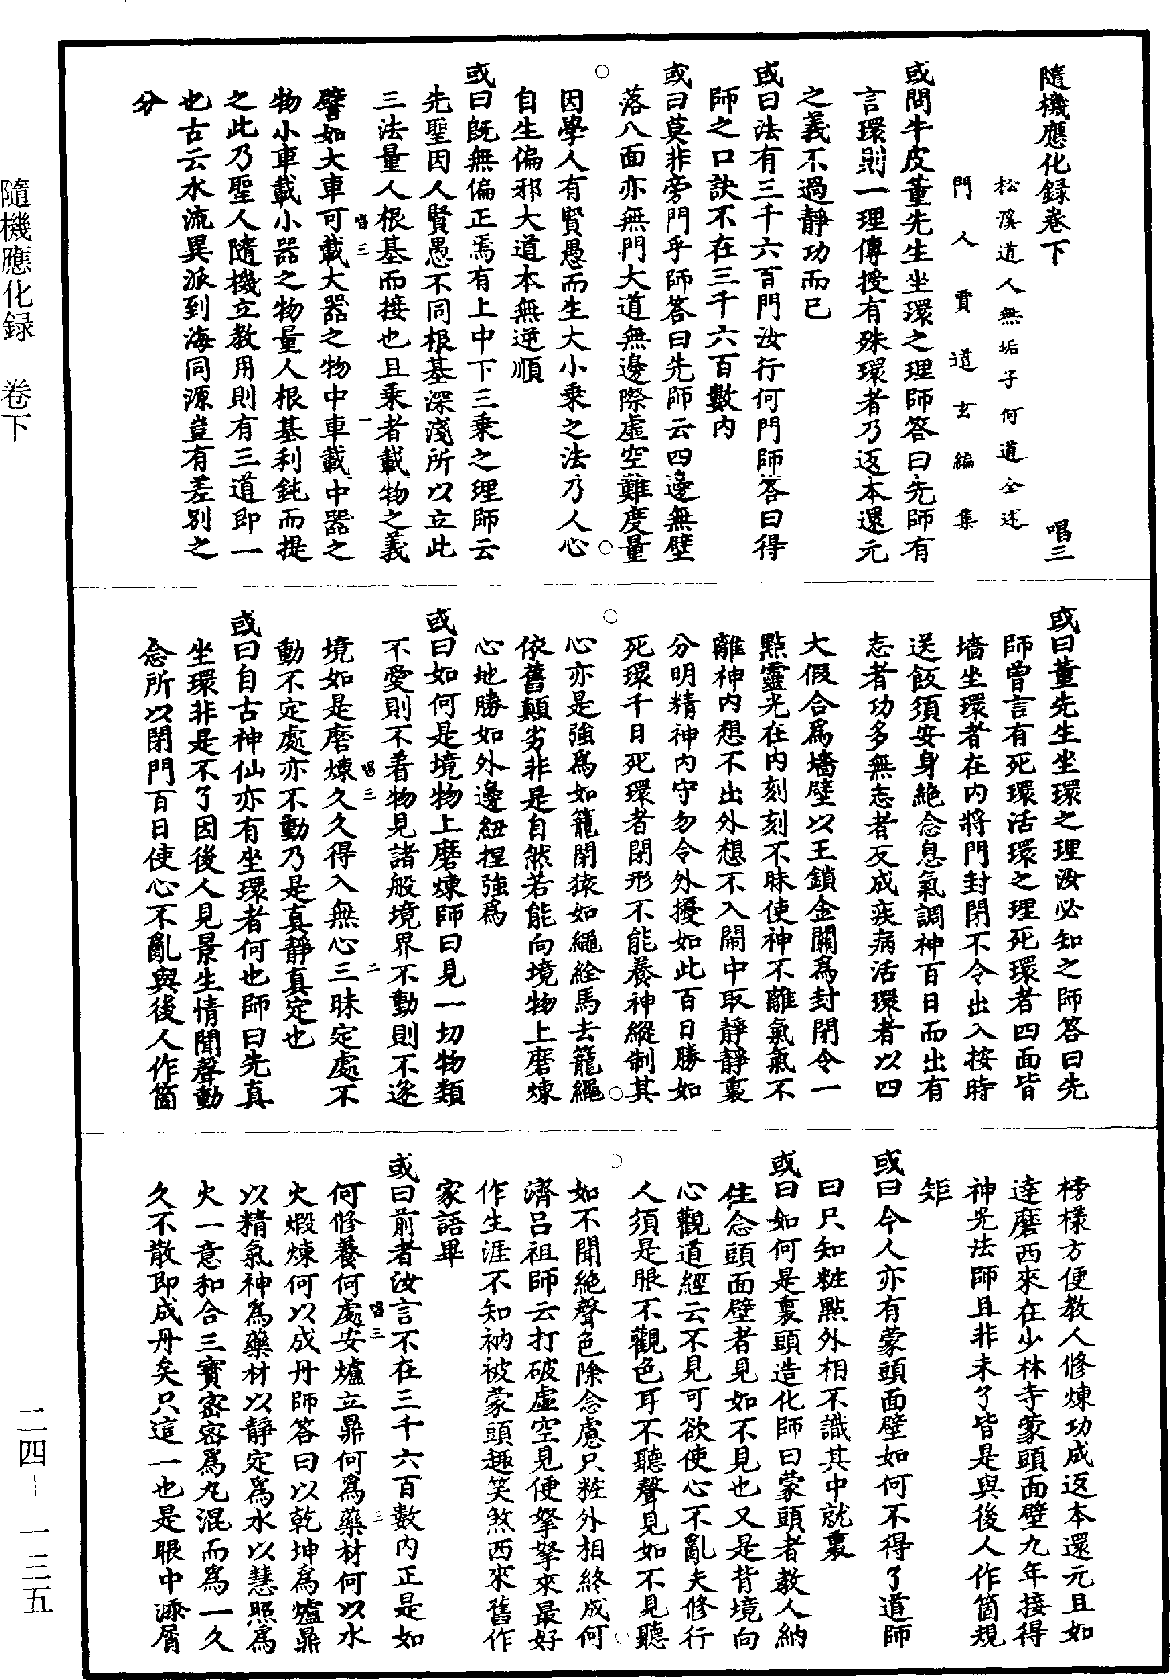 隨機應化録卷下　唱三
松溪道人無垢子何道全述
門人賈道玄編集
或問牛皮董先生坐環之理師答曰先師有
言環則一理傳授有殊環者乃返本還元
之義不過靜功而已
或曰法有三千六百門汝行何門師答曰得
師之口訣不在三千六百數內
或曰莫非旁門乎師答曰先師云四邊無壁
落八面亦無門大道無邊際虛空難度量
因學人有賢愚而生大小乘之法乃人心
自生偏邪大道本無逆順
或曰旣無偏正焉有上中下三乘之理師云
先聖因人賢愚不同根基深淺所以立此
三法量人根基而接也且乘者載物之義
譬如大車可載大器之物中車載中器之
物小車載小器之物量人根基利鈍而提
之此乃聖人隨機立教用則有三道即一
也古云水流異派到海同源豈有差別之
分
唱三
一
或曰董先生坐環之理汝必知之師答曰先
師曾言有死環活環之理死環者四面皆
墻坐環者在內將門封閉不令出入按時
送飯須安身絶念息氣調神百日而出有
志者功多無志者反成疾病活環者以四
大假合爲墻壁以玉鎖金關爲封閉令一
點靈光在內刻刻不昧使神不離氣氣不
離神內想不出外想不入鬧中取靜靜裏
分明精神內守勿令外擾如此百日勝如
死環千日死環者閉形不能養神縱制其
心亦是強爲如籠閉猿如繩絟馬去籠繩
依舊顛劣非是自然若能向境物上磨煉
心地勝如外邊紐捏強爲
或曰如何是境物上磨煉師曰見一切物類
不愛則不着物見諸般境界不動則不逐
境如是磨煉久久得入無心三昧定處不
動不定處亦不動乃是真靜真定也
或曰自古神仙亦有坐環者何也師曰先真
坐環非是不了因後人見景生情聞聲動
念所以閉門百日使心不亂與後人作箇
唱三
二
榜樣方便教人修煉功成返本還元且如
達磨西來在少林寺蒙頭面壁九年接得
神光法師且非未了皆是與後人作箇規
矩
或曰今人亦有蒙頭面壁如何不得了道師
曰只知粧點外相不識其中就裏
或曰如何是裏頭造化師曰蒙頭者教人納
住念頭面壁者見如不見也又是背境向
心觀道經云不見可欲使心不亂夫修行
人須是眼不觀色耳不聽聲見如不見聽
如不聞絶聲色除念慮只粧外相終成何
濟呂祖師云打破虛空見便拏拏來最好
作生涯不知衲被蒙頭趣笑煞西來舊作
家語畢
或曰前者汝言不在三千六百數內正是如
何修養何處安爐立鼎何爲藥材何以水
火煅煉何以成丹師答曰以乾坤爲爐鼎
以精氣神爲藥材以靜定爲水以慧照爲
火一意和合三寳密密爲丸混而爲一久
久不散即成丹矣只這一也是眼中添屑
唱三
三
隨機應化録　卷下
二四—一三五